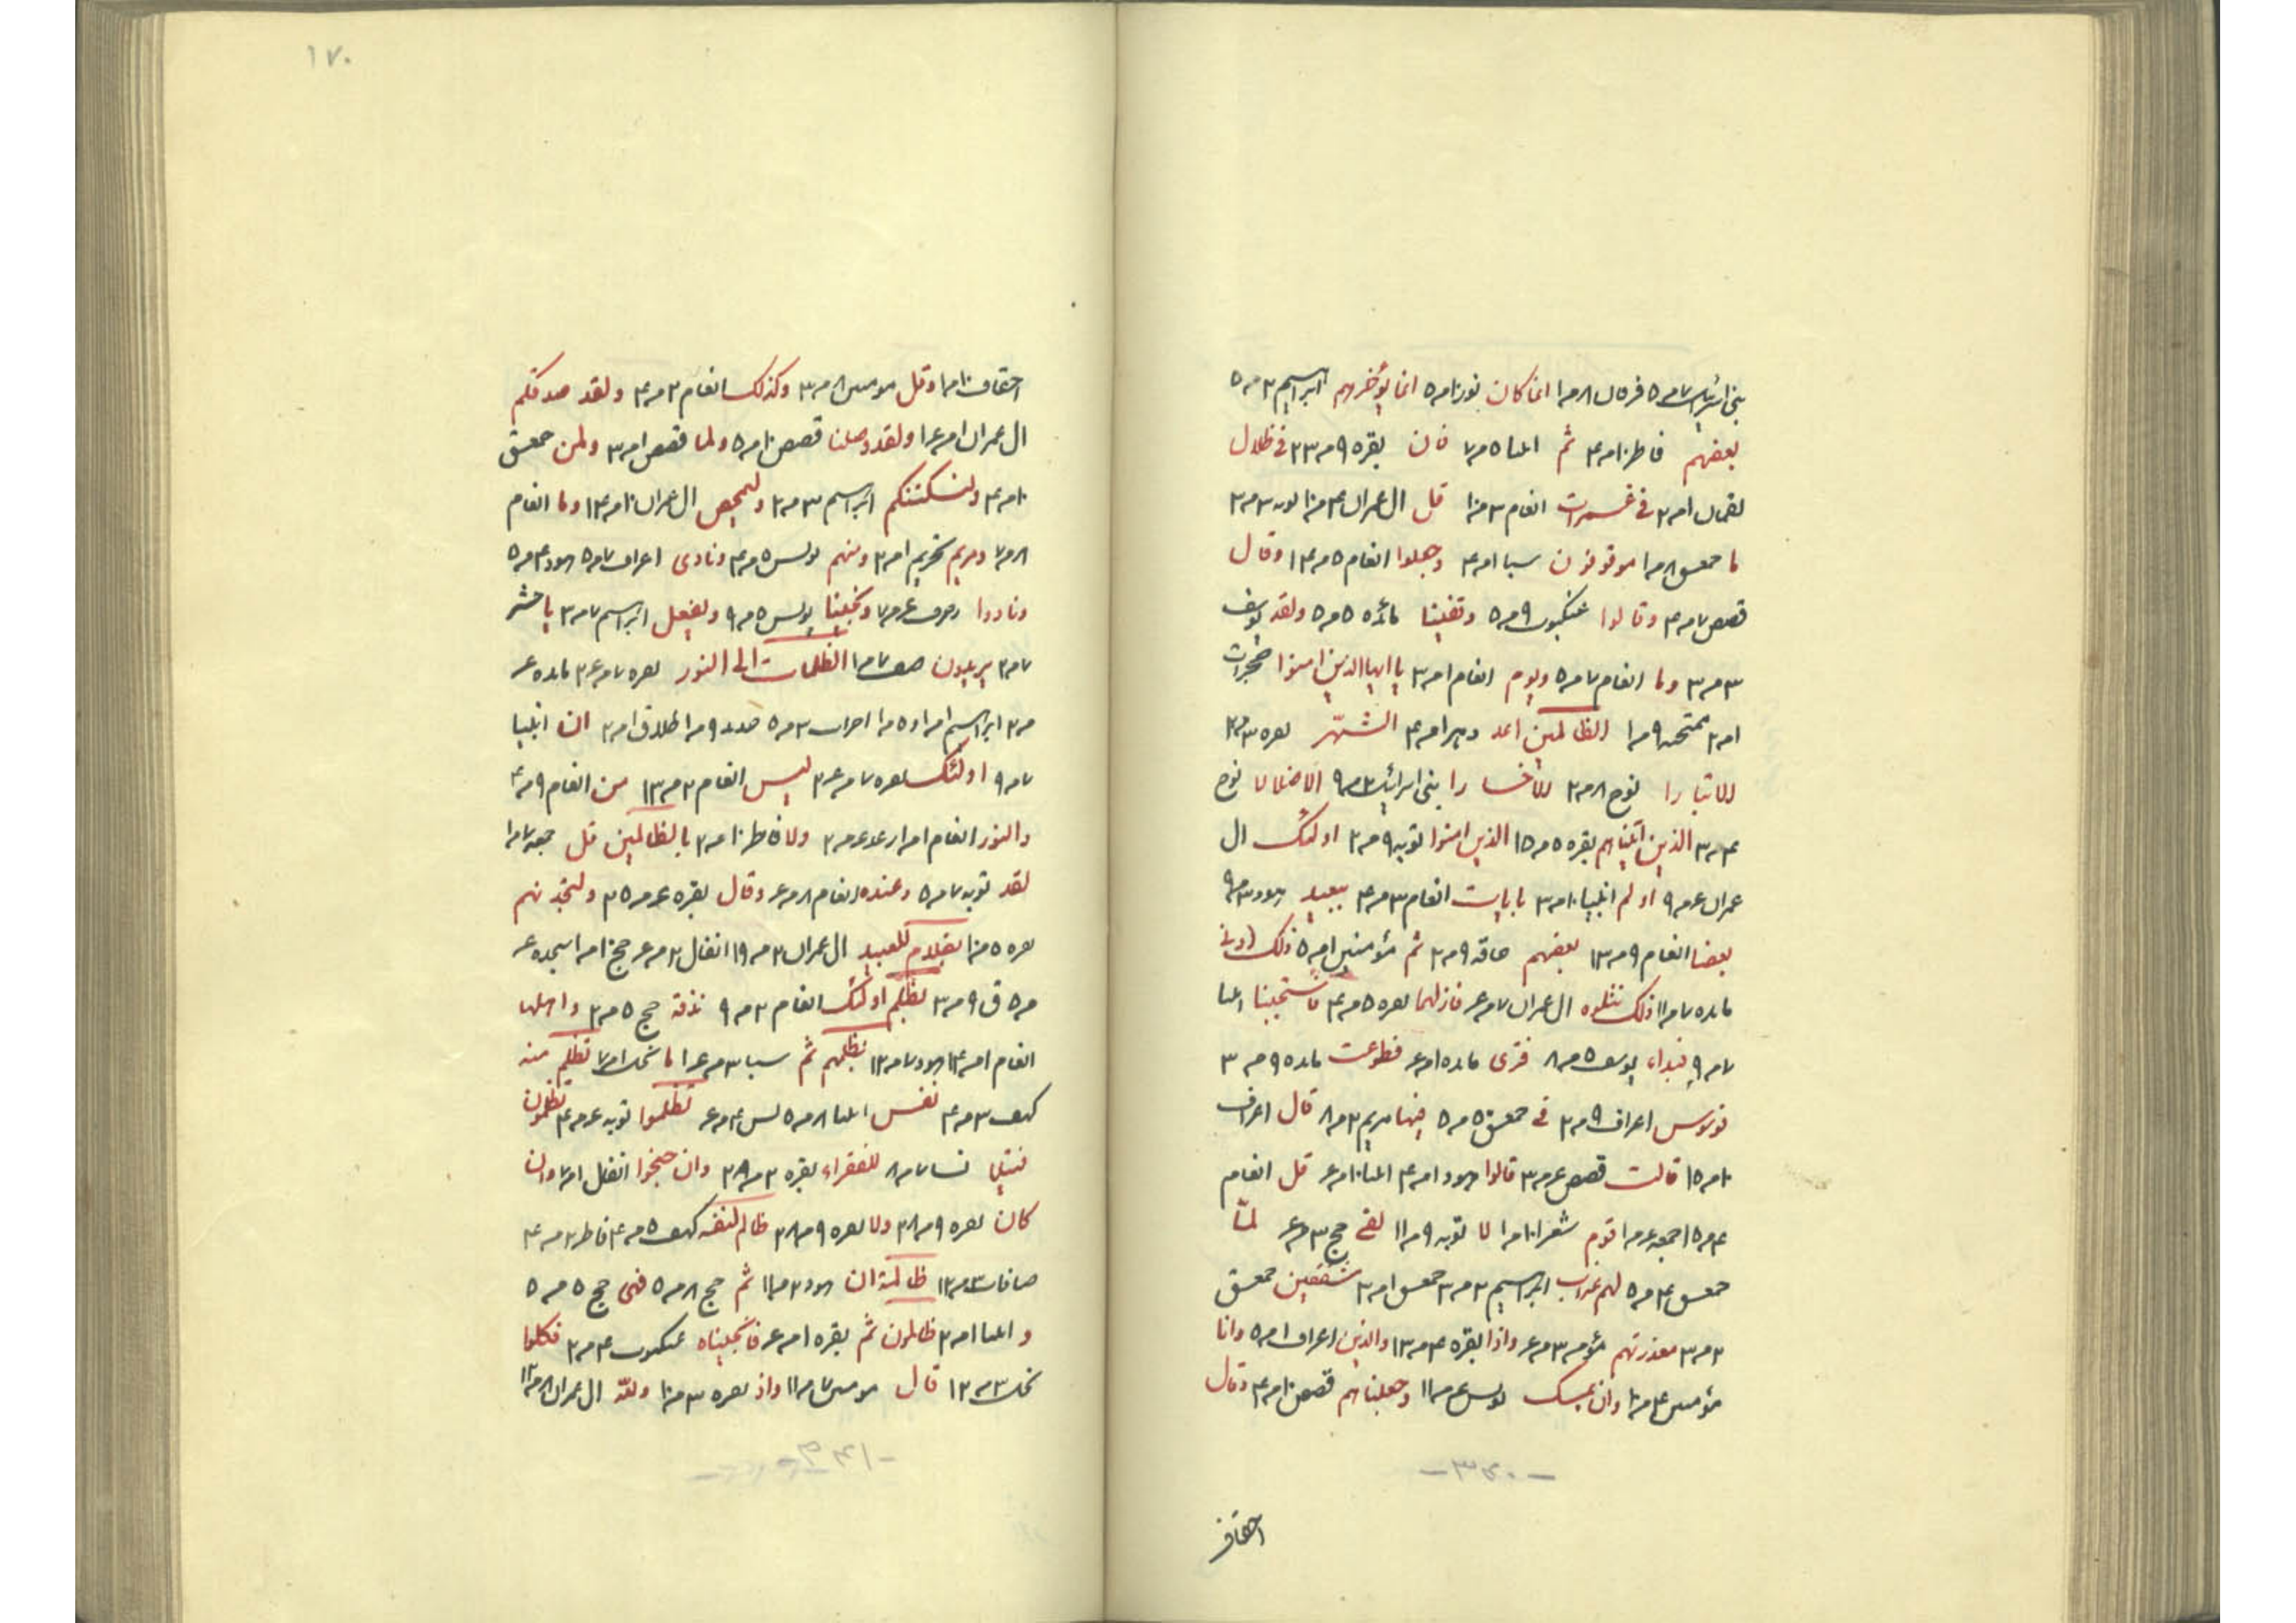 بنی اسرائیل ۷ مر ۵ فرقان ۸ مر ۱ انما کان نور ۱۰ مر ۵ انما یؤخرهم ابراهیم ۲ مر ۵
بعضهم فاطر ۱۰ مر ۴ ثم انبیا ۵ مر ۷ فان بقره ۹ مر ۲۳ فی ظلال
لقمان ۱ مر ۲ فی غمرات انعام ۳ مر ۱۰ قل ال عمران ۴ مر ۱۰ توبه ۳ مر ۲
ما حمعسق ۸ مر ۱ موقوفون سبا ۱ مر ۴ وجعلوا انعام ۵ مر ۱۴ وقال
قصص ۷ مر ۴ وقالوا عنکبوت ۹ مر ۵ وقفینا مائده ۵ مر ۵ ولقد یوسف
۳ مر ۳ وما انعام ۷ مر ۵ ویوم انعام ۱ مر ۳ یا ایها الذین امنوا حجرات
۱ مر ۲ ممتحنه ۹ مر ۱ الظالمین اعد دهر ۱ مر ۴ الشهر بقره ۳ مر ۲۴
الا تبارا نوح ۸ مر ۲ الا خسارا بنی اسرائیل ۳ مر ۹ الا ضلالا نوح
۴ مر ۳ الذین آتیناهم بقره ۵ مر ۱۵ الذین امنوا توبه ۹ مر ۲ اولئک ال
عمران ۶ مر ۹ اولم انبیا ۱۰ مر ۳ بایات انعام ۳ مر ۴ ببعید هود ۳ مر ۹
بعضا انعام ۹ مر ۱۳ بعضهم حاقه ۹ مر ۲ ثم مؤمنین ۱ مر ۵ ذلک
مائده ۷ مر ۱۱ ذلک نتلوه ال عمران ۷ مر ۶ فازلهما بقره ۵ مر ۴ فاستجبنا انبیا
۷ مر ۹ فبداء یوسف ۵ مر ۸ فتری مائده ۱ مر ۶ فطوعت مائده ۹ مر ۳
فوسوس اعراف ۹ مر ۲ فی حمعسق ۵ مر ۵ فیها مریم ۲ مر ۸ قال اعراف
۱۰ مر ۱۵ قالت قصص ۶ مر ۳ قالوا هود ۱ مر ۴ انبیا ۱۰ مر ۶ قل انعام
۴ مر ۱۵ جمعه ۶ مر ۱ قوم شعرا ۱۰ مر ۱ لا توبه ۹ مر ۱۱ لفی حج ۳ مر ۶ لما
حمعسق ۴ مر ۵ لهم عذاب ابراهیم ۲ مر ۳ حمعسق ۱ مر ۳ مشفقین حمعسق
۲ مر ۳ معذرتهم مؤمن ۳ مر ۶ واذا بقره ۴ مر ۱۳ والذین اعراف ۱ مر ۵ وانا
مؤمن ۴ مر ۱۰ وان یمسک یونس ۶ مر ۱۱ وجعلناهم قصص ۱۰ مر ۴ وقال
-۳۴۰-
احقاف
۱۷۰
احقاف ۱۰ مر ۱ وقل مومنین ۸ مر ۳ وکذلک انعام ۲ مر ۴ ولقد صدقکم
ال عمران ۱ مر ۱۶ ولقد وصلنا قصص ۱۰ مر ۵ ولما قصص ۱ مر ۳ ولمن حمعسق
۱۰ مر ۴ ولنسکننکم ابراهیم ۳ مر ۲ ولیمحص ال عمران ۱۰ مر ۱۴ وما انعام
۸ مر ۷ ومریم تحریم ۱ مر ۲ ومنهم یونس ۵ مر ۴ ونادی اعراف ۷ مر ۵ هود ۴ مر ۵
ونادوا زخرف ۶ مر ۷ ونجینا یونس ۵ مر ۹ ویفعل ابراهیم ۷ مر ۲ یا حشر
۷ مر ۲ یریدون صف ۷ مر ۱ الظلمات الی النور بقره ۷ مر ۲۶ مائده ۶
مر ۲ ابراهیم ۱ مر ۱ و ۵ مر ۱ احزاب ۳ مر ۵ حدید ۹ مر ۱ طلاق ۱ مر ۲ ان انبیا
۷ مر ۹ اولئک بقره ۷ مر ۲۶ لیس انعام ۲ مر ۱۳ من انعام ۹ مر ۴
والنور انعام ۱ مر ۱ رعد ۶ مر ۲ ولا فاطر ۱۰ مر ۲ بالظالمین قل جمعه ۷ مر ۱
لقد توبه ۷ مر ۵ وعنده انعام ۸ مر ۶ وقال بقره ۶ مر ۲۵ ولتجدنهم
بقره ۵ مر ۱۰ بظلام للعبید ال عمران ۲ مر ۱۹ انفال ۲ مر ۶ حج ۱۰ مر ۱ سجده ۶
مر ۵ ق ۹ مر ۳ بظلم اولئک انعام ۲ مر ۹ نذقه حج ۵ مر ۲ واهلها
انعام ۱ مر ۱۴ هود ۷ مر ۱۲ بظلمهم ثم سبا ۳ مر ۱۶ ما نحل ۱ مر ۷ تظلم منه
کهف ۳ مر ۴ نفس انبیا ۸ مر ۵ یس ۴ مر ۶ تظلموا توبه ۶ مر ۴ تظلمون
فتیلا نسا ۷ مر ۸ للفقراء بقره ۲ مر ۲۸ وان جنحوا انفال ۱ مر ۷ وان
کان بقره ۹ مر ۲۸ ولا بقره ۹ مر ۲۸ ظالم لنفسه کهف ۵ مر ۴ فاطر ۲ مر ۴
صافات ۳ مر ۱۲ ظالمة ان هود ۲ مر ۱۱ ثم حج ۸ مر ۵ فهی حج ۵ مر ۵
و انبیا ۱ مر ۲ ظالمون ثم بقره ۱ مر ۶ فانجیناه عنکبوت ۴ مر ۲ فکلوا
نحل ۳ مر ۱۲ قال مومنین ۷ مر ۱۱ واذ بقره ۳ مر ۱۰ ولله ال عمران ۸ مر ۱۲